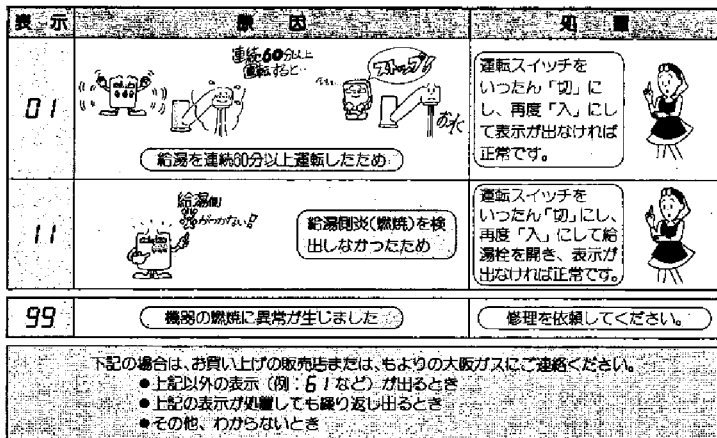 表示 原因 処置
01
連続60分以上
運転すると‥
ストップ!
お水
給湯を連続60分以上運転したため
運転スイッチを
いったん「切」に
し、再度「入」にし
て表示が出なければ
正常です。
11
給湯側
がつかない!!
給湯側炎(燃焼)を検
出しなかったため
運転スイッチを
いったん「切」にし、
再度「入」にして給
湯栓を開き、表示が
出なければ正常です。
99 機器の燃焼に異常が生じました 修理を依頼してください。
下記の場合は、お買い上げの販売店または、もよりの大阪ガスにご連絡ください。
●上記以外の表示(例:61など)が出るとき
●上記の表示が処置しても繰り返し出るとき
●その他、わからないとき